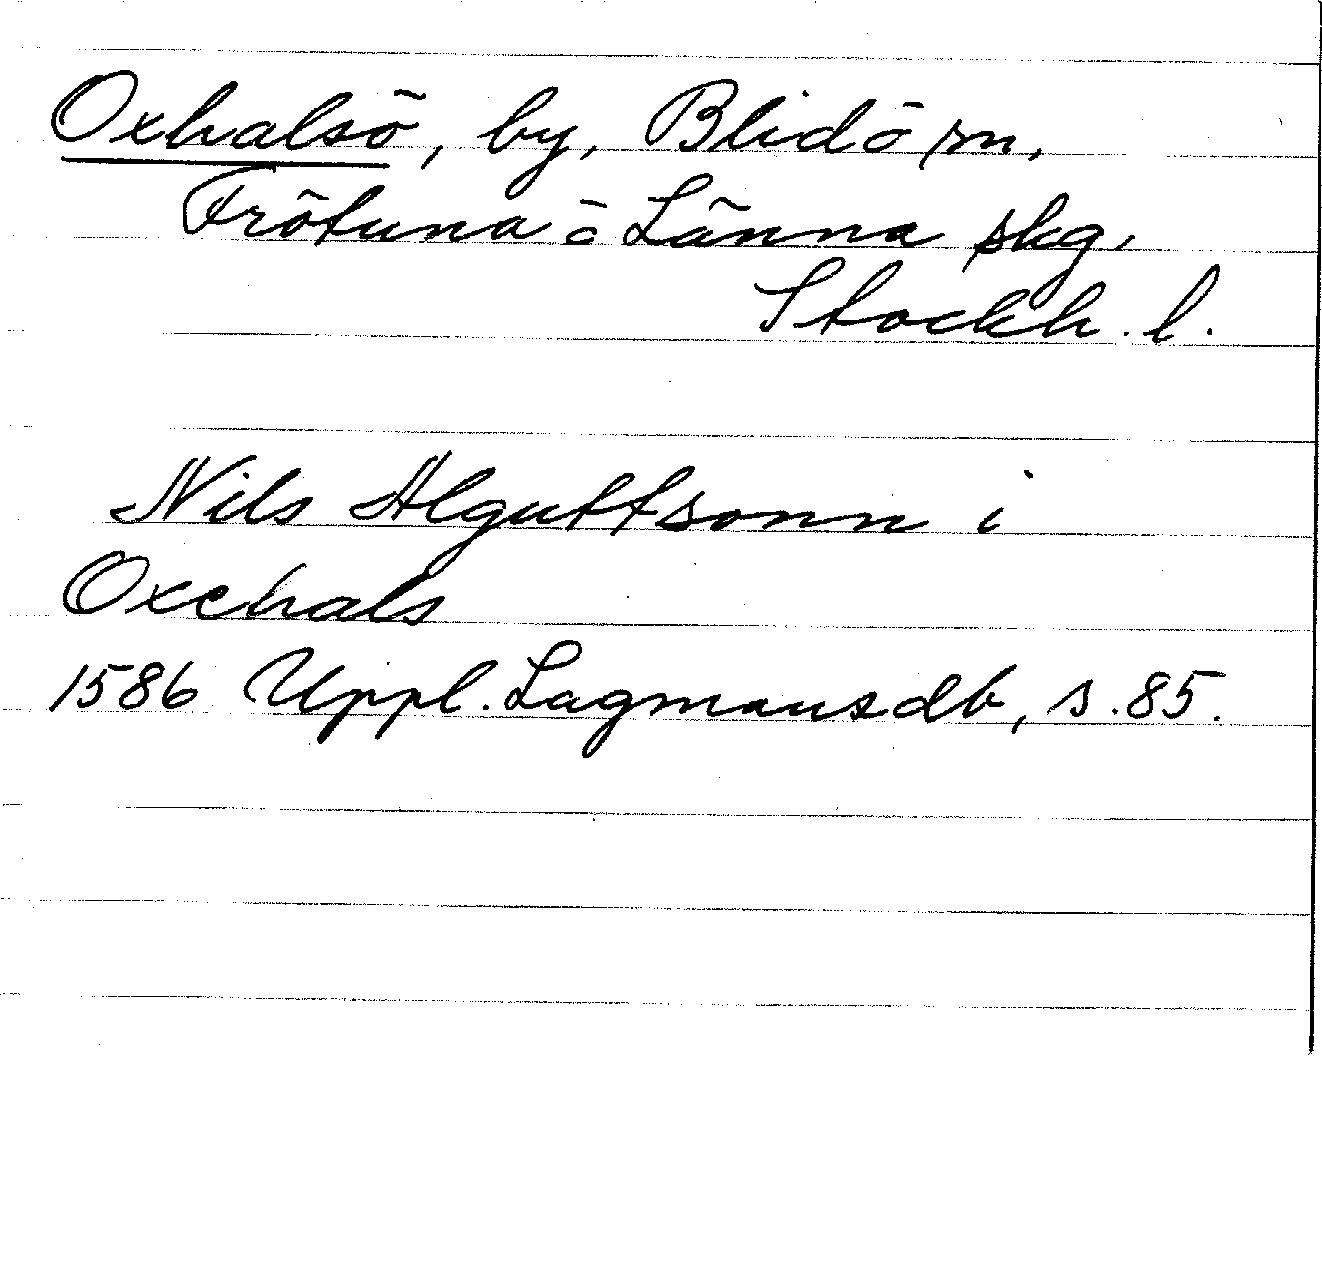 Oxhalsö, by, Blidö sn,
Frötuna o Länna skg,
Stockh. l.
Nils Alguttsonn i
Oxehals
1586 Uppl. Lagmansdb, s. 85.